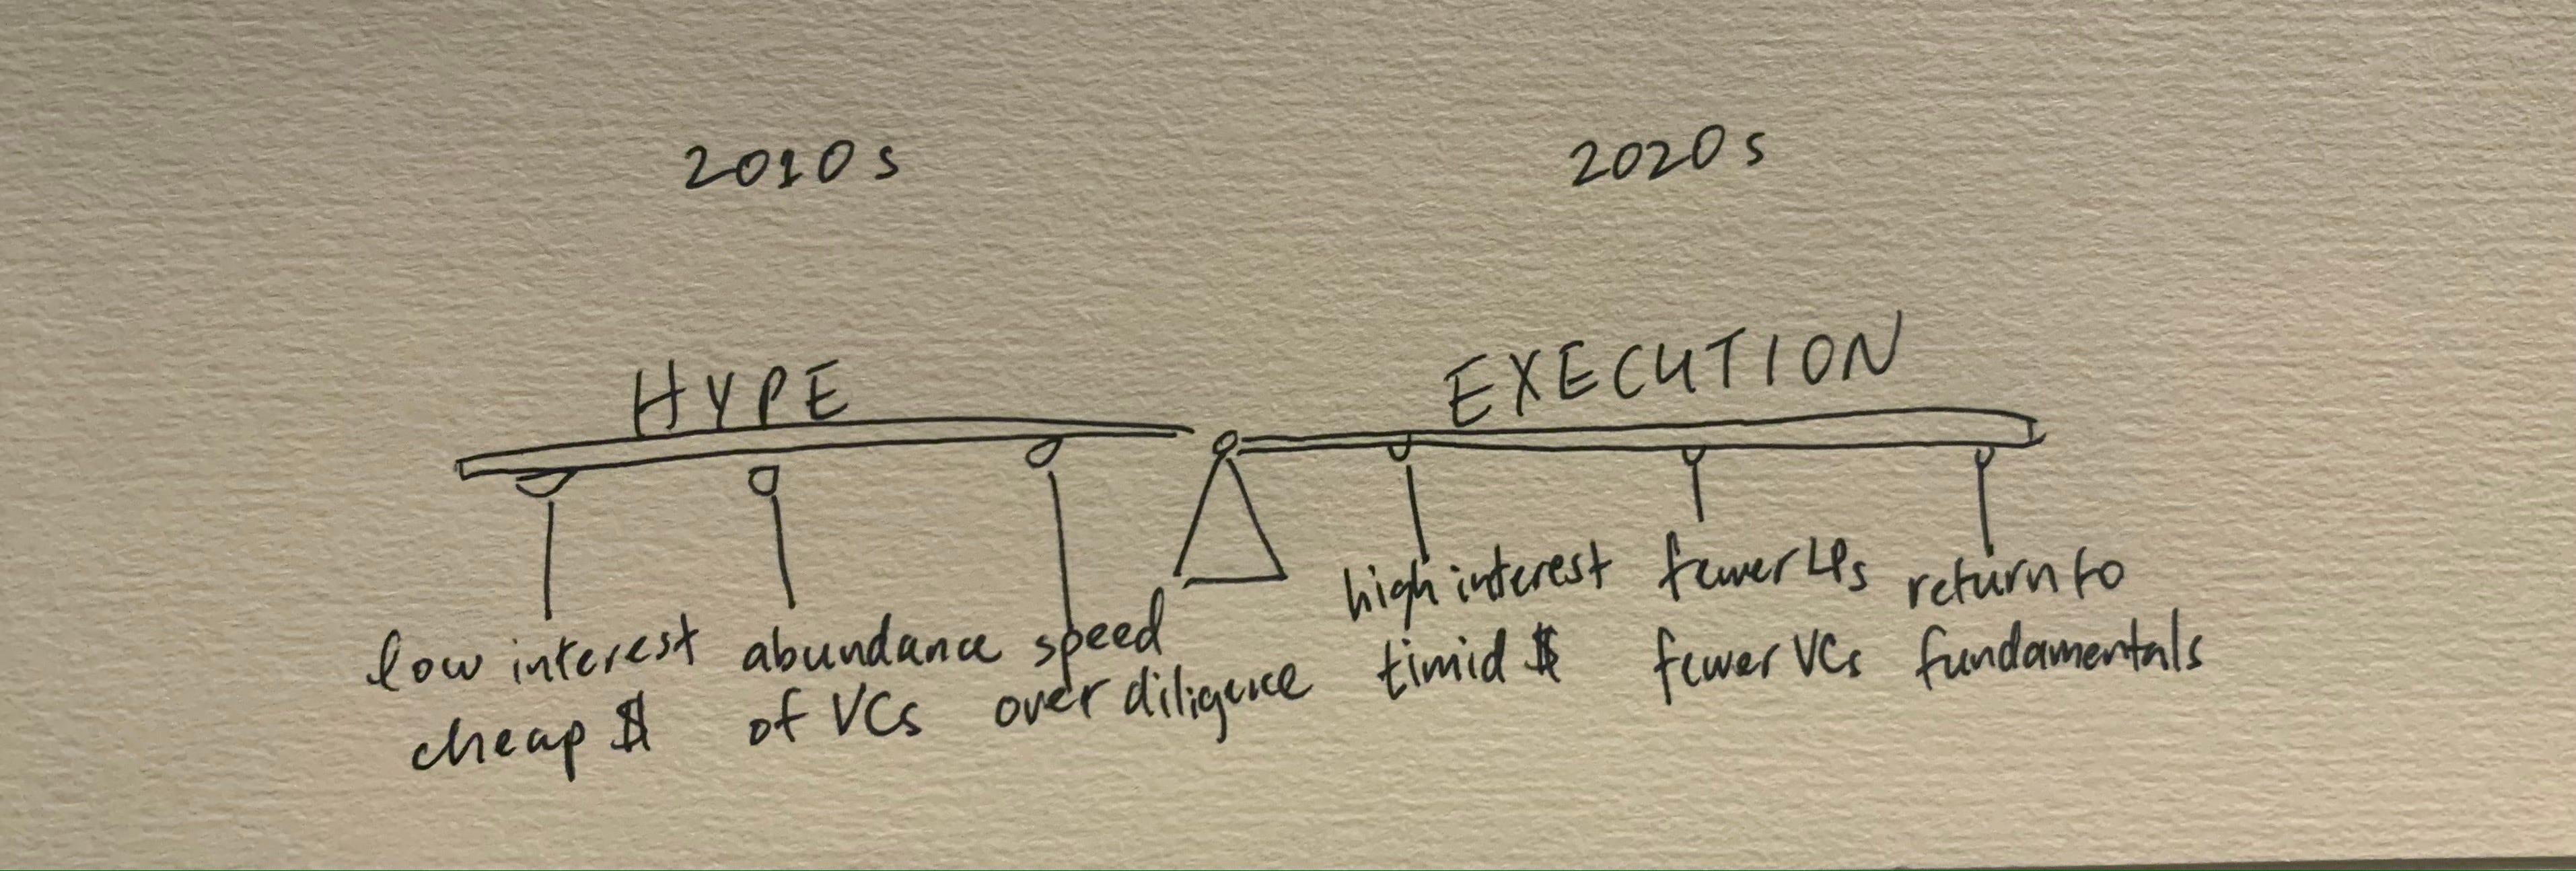 2010s
2020s
HYPE
EXECUTION
low interest
cheap $
abundance
of VCs
speed
over diligence
high interest
timid $
fewer LPs
fewer VCs
return to
fundamentals